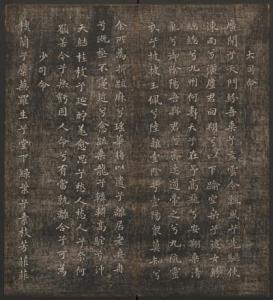 大司命
廣開兮天門紛吾乘兮玄雲令飄風兮先驅使
涷雨兮灑塵君回翔兮以下踰空桑兮從女紛
總總兮九州何壽夭兮在予高飛兮安翔乘清
氣兮御陰陽吾與君兮齊速導帝之兮九坑靈
衣兮披披玉佩兮陸離壹陰兮壹陽衆莫知兮
余所為折疏麻兮瑤華將以遺兮離居老冉冉
兮既極不寖近兮愈疏乘龍兮轔轔高駝兮沖
天結桂枝兮延竚羌愈思兮愁人愁人兮奈何
願若今兮無虧固人命兮有當孰離合兮可為
少司命
秋蘭兮麋蕪羅生兮堂下綠葉兮素枝芳菲菲